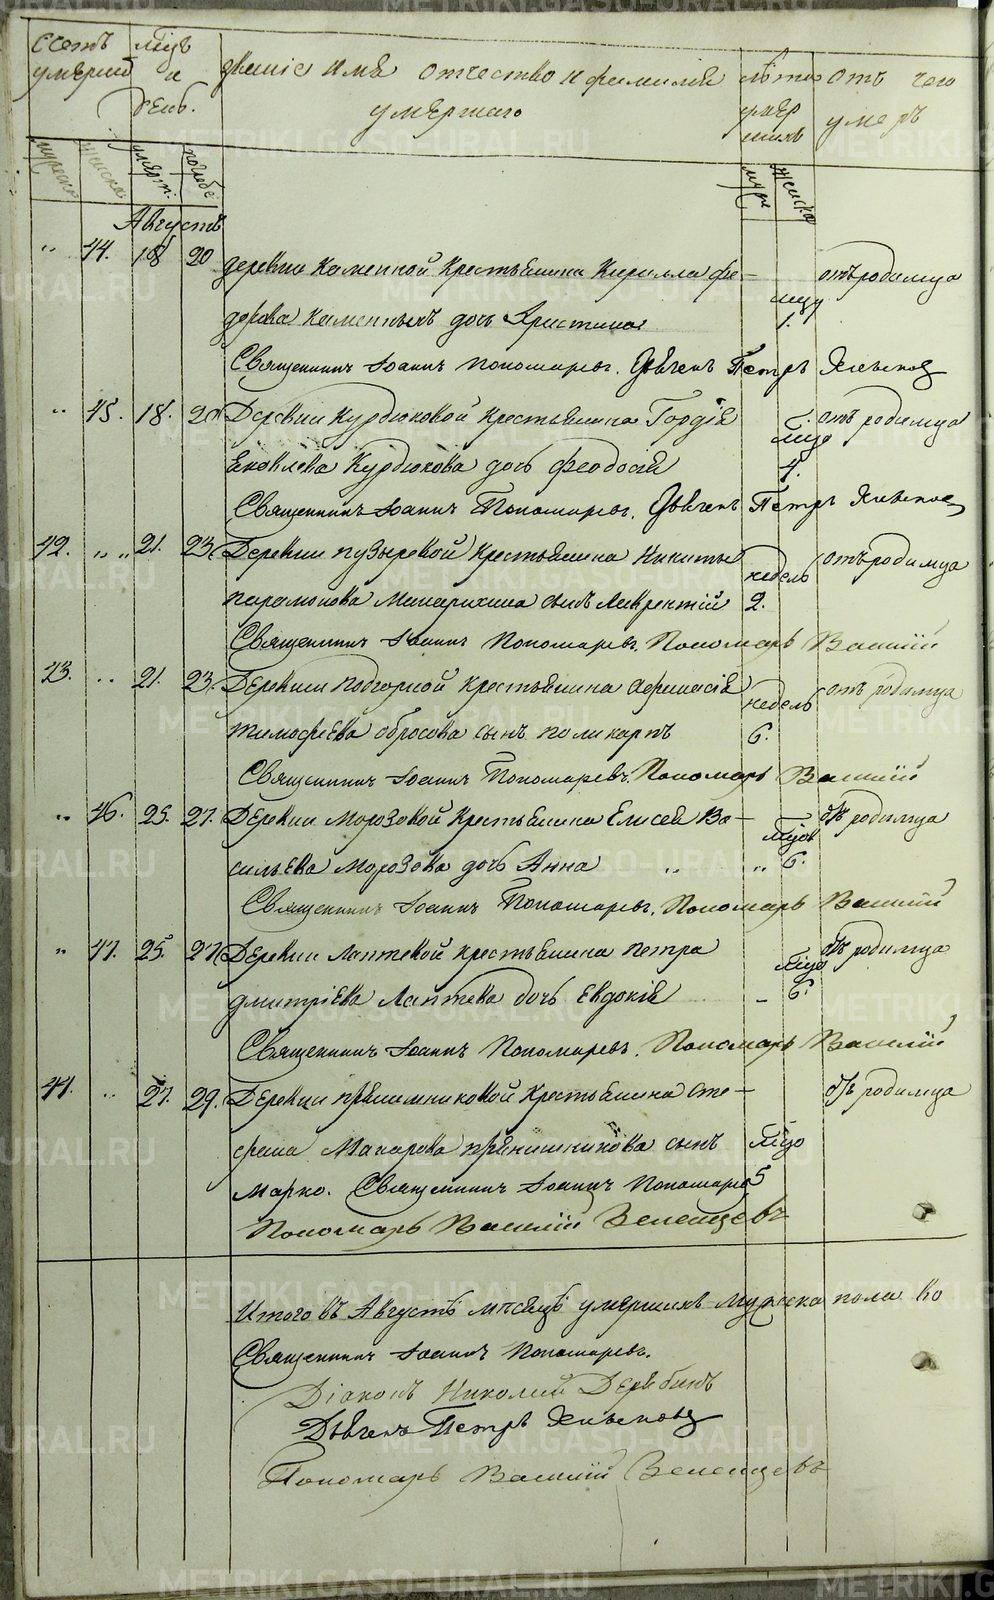 Счетъ умершихъ
Мцъ и день.
Званiе имя отчество и фамилiя умершаго
лѣта умершихъ
отъ чего умеръ
мужска
женска
умерт.
погребе
муже
женска
Августъ
" 44. 18 20 деревни Каменной крестьянина Кирилла Фе- отъ родимца
дорова Каменныхъ дочь Христина мцу 1.
Священникъ Iоаннъ Пономаревъ. Дьячекъ Петръ
" 45. 18. 20 Деревни Курдюковой крестьянина Гордiя мцо отъ родимца
Яковлева Курдюкова дочь Феодосiя 4.
Священникъ Iоаннъ Пономаревъ. Дьячекъ Петръ
42. " " 21. 23. Деревни Пузыревой крестьянина Никиты недель отъ родимца
Парамонова сынъ Лаврентiй 2.
Священникъ Iоаннъ Пономаревъ. Пономарь Василiй
43. " 21. 23. Деревни Подгорной крестьянина Афанасiя недель отъ родимца
Тимофѣева Обросова сынъ Поликарпъ 6.
Священникъ Iоаннъ Пономаревъ. Пономарь Василiй
" 46. 25. 27. Деревни Морозовой крестьянина Елисея Ва- мцов отъ родимца
сильева Морозова дочь Анна " " 6.
Священникъ Iоаннъ Пономаревъ. Пономарь Василiй
" 47. 25. 27. Деревни Лаптевой крестьянина Петра мцо отъ родимца
Дмитрiева Лаптева дочь Евдокiя - 6.
Священникъ Iоаннъ Пономаревъ. Пономарь Василiй
44. " 27. 29. Деревни Прянишниковой крестьянина Сте- отъ родимца
фана Макарова Прянишникова сынъ мцо
Марко. Священникъ Iоаннъ Пономаревъ 5
Пономарь Василiй Зеленцовъ
Итого въ Августѣ мѣсяцѣ умершихъ мужеска пола
Священникъ Iоаннъ Пономаревъ.
Дiаконъ Николай Дерябинъ
Дьячекъ Петръ
Пономарь Василiй Зеленцовъ
METRIKI.GASO-URAL.RU